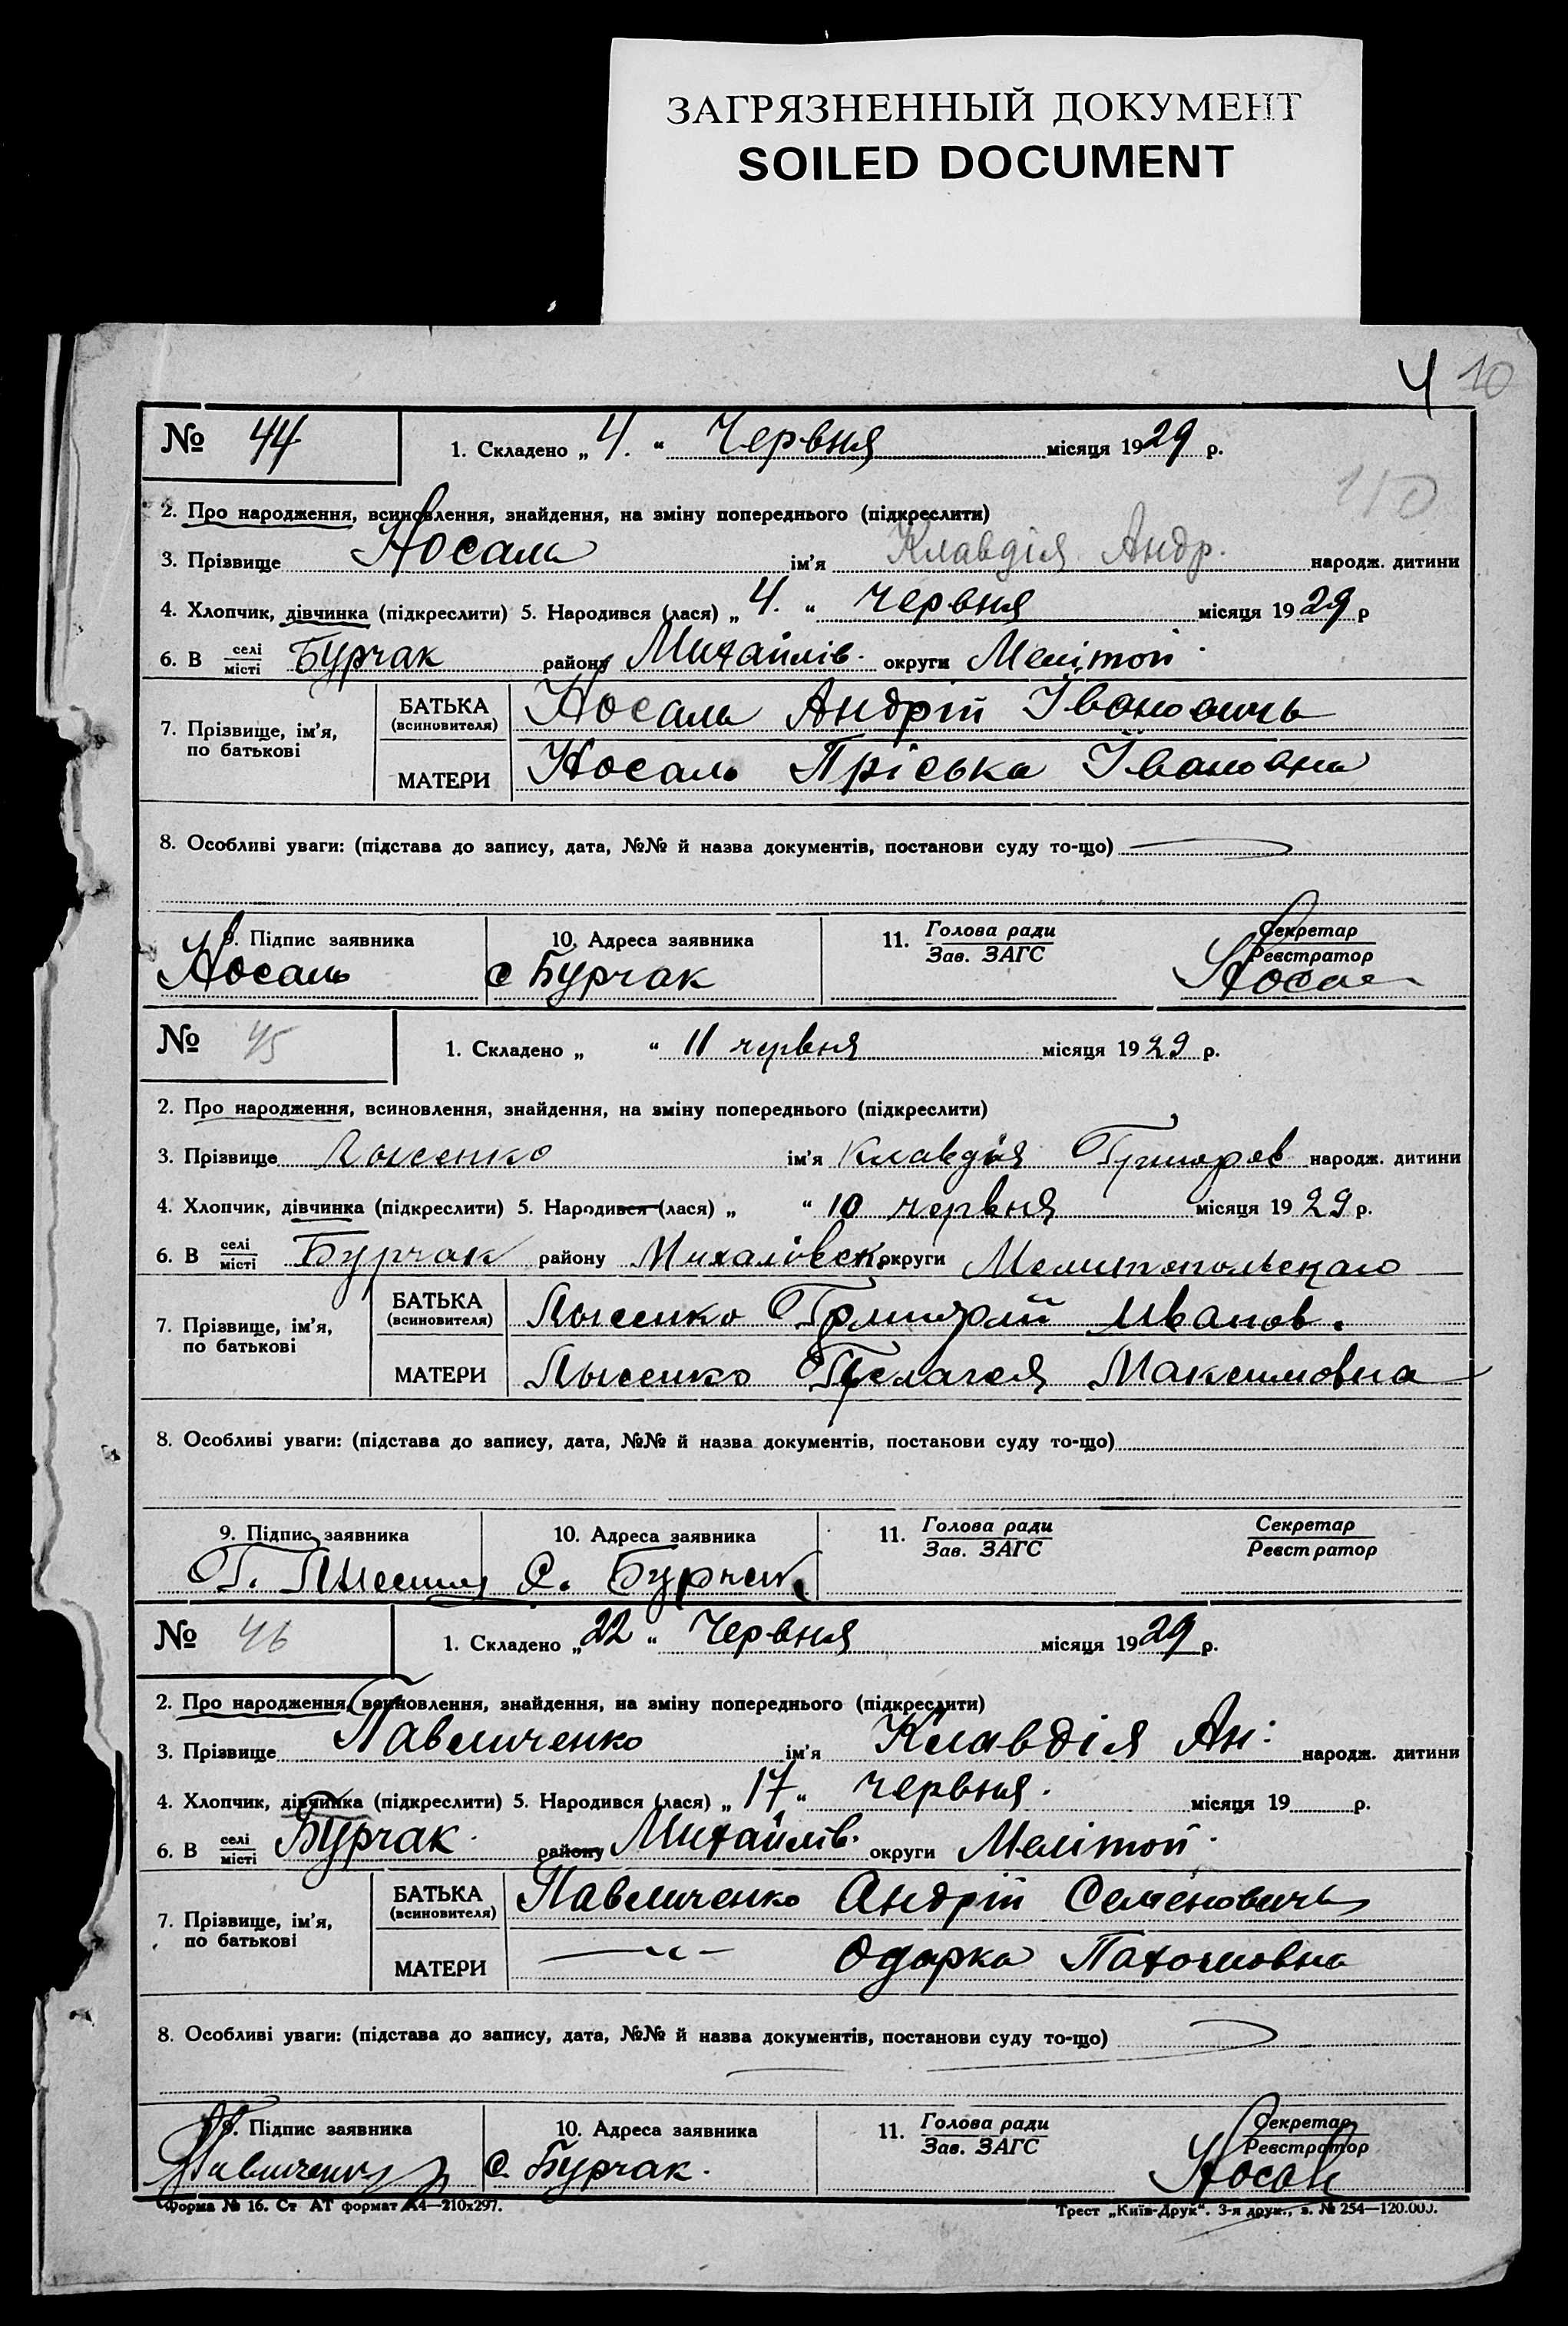 ЗАГРЯЗНЕННЫЙ ДОКУМЕНТ
SOILED DOCUMENT
4 10
№ 44 1. Складено „ 4. “ Червня місяця 1929 р.
110
2. Про народження, всиновлення, знайдення, на зміну попереднього (підкреслити)
3. Прізвище Носаль ім'я Клавдія Андр. народж. дитини
4. Хлопчик, дівчинка (підкреслити) 5. Народився (лася) „ 4. “ червня місяця 1929 р
6. В селі/місті Бурчак району Михайлів. округи Мелітоп.
7. Прізвище, ім'я, по батькові
БАТЬКА (всиновителя) Носаль Андрій Івановичь
МАТЕРИ Носаль Пріська Івановна
8. Особливі уваги: (підстава до запису, дата, №№ й назва документів, постанови суду то-що)
9. Підпис заявника 10. Адреса заявника 11. Голова ради/Зав. ЗАГС Секретар/Реєстратор
Носаль с Бурчак Носаль
№ 45 1. Складено „ “ 11 червня місяця 1929 р.
2. Про народження, всиновлення, знайдення, на зміну попереднього (підкреслити)
3. Прізвище Лысенко ім'я Клавдия Григорев народж. дитини
4. Хлопчик, дівчинка (підкреслити) 5. Народився (лася) „ “ 10 червня місяця 1929 р.
6. В селі/місті Бурчак району Михаловск. округи Мелитопольскаго
7. Прізвище, ім'я, по батькові
БАТЬКА (всиновителя) Лысенко Григорий Иванов.
МАТЕРИ Лысенко Пелагея Максимовна
8. Особливі уваги: (підстава до запису, дата, №№ й назва документів, постанови суду то-що)
9. Підпис заявника 10. Адреса заявника 11. Голова ради/Зав. ЗАГС Секретар/Реєстратор
Г. С. Бурчак
№ 46 1. Складено „ 22 “ Червня місяця 1929 р.
2. Про народження, всиновлення, знайдення, на зміну попереднього (підкреслити)
3. Прізвище Павличенко ім'я Клавдія Ан: народж. дитини
4. Хлопчик, дівчинка (підкреслити) 5. Народився (лася) „ 17 “ червня. місяця 19 р.
6. В селі/місті Бурчак. району Михайлів. округи Мелітоп.
7. Прізвище, ім'я, по батькові
БАТЬКА (всиновителя) Павличенко Андрій Семеновичь
МАТЕРИ —〃— Одарка Пахомовна
8. Особливі уваги: (підстава до запису, дата, №№ й назва документів, постанови суду то-що)
9. Підпис заявника 10. Адреса заявника 11. Голова ради/Зав. ЗАГС Секретар/Реєстратор
с. Бурчак. Носаль
Форма № 16. Ст АТ формат А4—210х297. Трест „Київ-Друк“. 3-я друк., з. № 254—120.000.